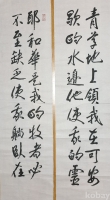 耶和華是我的牧者必
不至缺乏使我躺臥在
青草地上領我在可安
歇的水邊他使我的靈